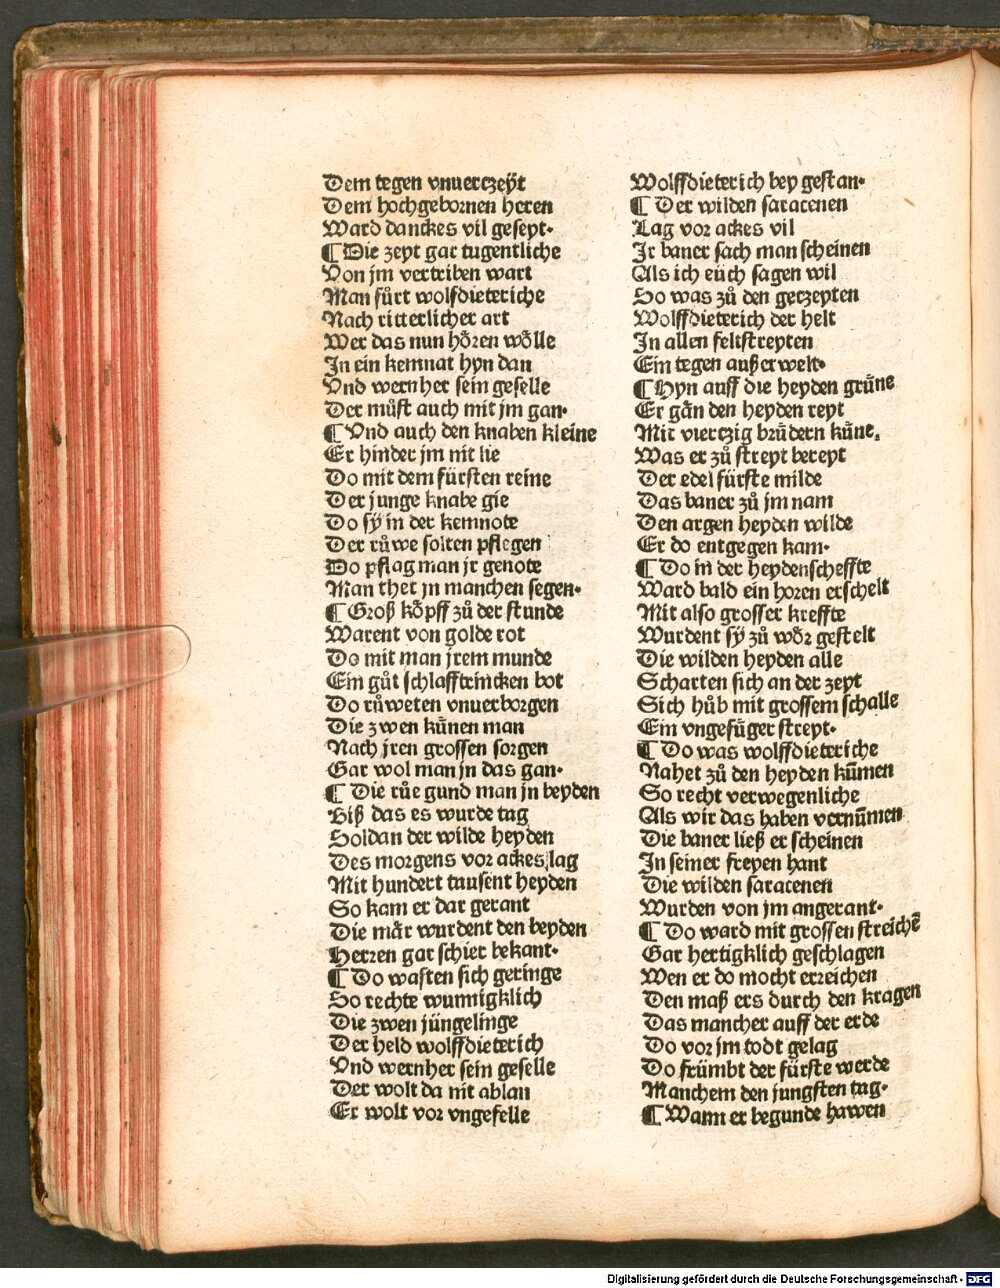 Dem tegen vnuerczeÿt
Dem hochgebornen heren
Ward danckes vil geseyt·
¶ Die zeyt gar tugentliche
Von jm vertriben wart
Man fůrt wolfdieteriche
Nach ritterlicher art
Wer das nun hören wölle
In ein kemnat hyn dan
Vnd wernher sein geselle
Der můst auch mit jm gan·
¶ Vnd auch den knaben kleine
Er hinder jm nit lie
Do mit dem fürsten reine
Der junge knabe gie
Do sÿ in der kemnote
Der růwe solten pflegen
Do pflag man jr genote
Man thet jn manchen segen·
¶ Groß köpff zů der stunde
Warent von golde rot
Do mit man jrem munde
Ein gůt schlafftrincken bot
Do růweten vnuerborgen
Die zwen künen man
Nach jren grossen sorgen
Gar wol man jn das gan·
¶ Die rüe gund man jn beyden
Biß das es wurde tag
Soldan der wilde heyden
Des morgens vor ackes lag
Mit hundert tausent heyden
So kam er dar gerant
Die mär wurdent den beyden
Herren gar schier bekant·
¶ Do wasten sich geringe
So rechte wunnigklich
Die zwen jüngelinge
Der held wolffdieterich
Vnd wernher sein geselle
Der wolt da nit ablan
Er wolt vor vngefelle
Wolffdieterich bey gestan·
¶ Der wilden saracenen
Lag vor ackes vil
Ir baner sach man scheinen
Als ich eüch sagen wil
So was zů den geczeyten
Wolffdieterich der helt
In allen feltstreyten
Ein tegen außerwelt·
¶ Hyn auff die heyden grüne
Er gän den heyden reyt
Mit vierczig brüdern küne.
Was er zů streyt bereyt
Der edel fürste milde
Das baner zů jm nam
Den argen heyden wilde
Er do entgegen kam·
¶ Do in der heydenscheffte
Ward bald ein horen erschelt
Mit also grosser kreffte
Wurdent sÿ zů wör gestelt
Die wilden heyden alle
Scharten sich an der zeyt
Sich hůb mit grossem schalle
Ein vngefüger streyt·
¶ Do was wolffdieteriche
Nahet zů den heyden kūmen
So recht verwegenliche
Als wir das haben vernūmen
Die baner ließ er scheinen
In seiner freyen hant
Die wilden saracenen
Wurden von jm angerant·
¶ Do ward mit grossen streichē
Gar hertigklich geschlagen
Wen er do mocht erreichen
Den maß ers durch den kragen
Das mancher auff der erde
Do vor jm todt gelag
Do frümbt der fürste werde
Manchem den jungsten tag·
¶ Wann er begunde hawen
Digitalisierung gefördert durch die Deutsche Forschungsgemeinschaft - DFG